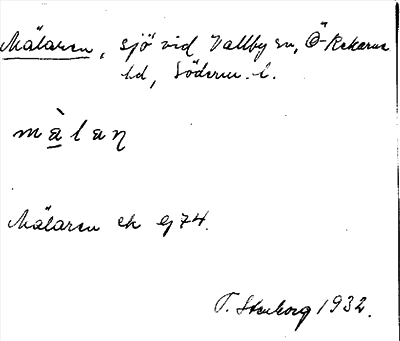 Mälaren, sjö vid Vallby sn, Ö-Rekarne
hd, Söderm. l.
mälaη
Mälaren ek 74.
T. Stenborg 1932.